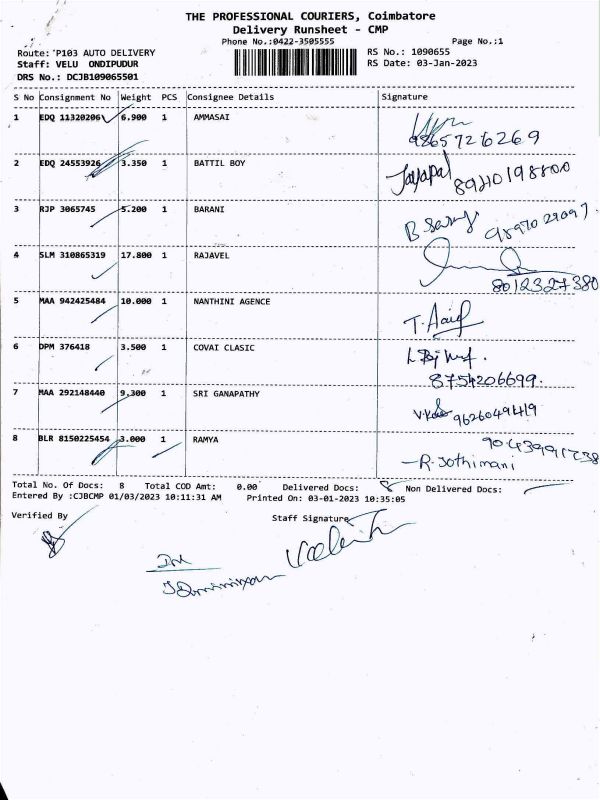 THE PROFESSIONAL COURIERS, Coimbatore
Delivery Runsheet - CMP
Phone No.:0422-3505555 Page No.:1
Route: P103 AUTO DELIVERY RS No.: 1090655
Staff: VELU ONDIPUDUR RS Date: 03-Jan-2023
DRS No.: DCJB109065501
S No Consignment No Weight PCS Consignee Details Signature
1 EDQ 11320206 6.900 1 AMMASAI
9865726269
2 EDQ 24553926 3.350 1 BATTIL BOY Jayapal 8940198800
3 RJP 3065745 5.200 1 BARANI
4 SLM 310865319 17.800 1 RAJAVEL
8012327380
5 MAA 942425484 10.000 1 NANTHINI AGENCE
6 DPM 376418 3.500 1 COVAI CLASIC
8754206699.
7 MAA 292148440 9.300 1 SRI GANAPATHY 9626049419
8 BLR 8150225454 3.000 1 RAMYA
R. Jothimani
Total No. Of Docs: 8 Total COD Amt: 0.00 Delivered Docs: 8 Non Delivered Docs:
Entered By :CJBCMP 01/03/2023 10:11:31 AM Printed On: 03-01-2023 10:35:05
Verified By Staff Signature